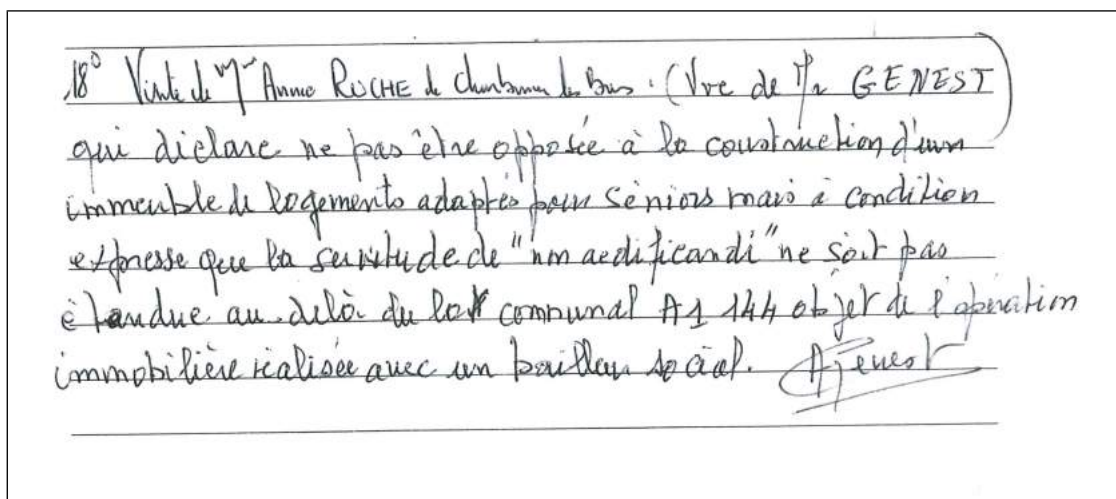 18° Visite de Mme Annie ROCHE de (Vve de Mr GENEST
qui déclare ne pas être opposée à la construction d'un
immeuble de logements adaptés pour séniors mais à condition
expresse que la servitude de "non aedificandi" ne soit pas
étendue au-delà du lot communal A1 144 objet de l'opération
immobilière réalisée avec un bailleur social. AGenest